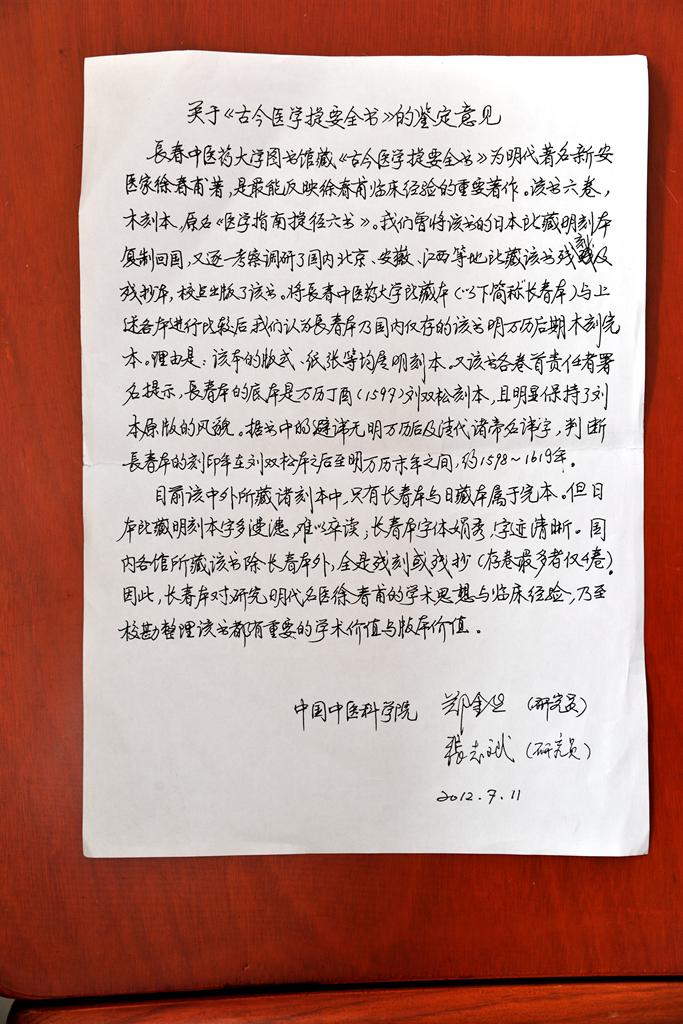 关于《古今医学捷要全书》的鉴定意见
長春中医药大学图书馆藏《古今医学捷要全书》为明代著名新安
医家徐春甫著,是最能反映徐春甫临床经验的重要著作。该书六卷,
木刻本,原名《医学指南捷径六书》。我们曾将该书的日本所藏明刻本
复制回国,又逐一考察调研了国内北京、安徽、江西等地所藏该书残刻及
残抄本,校点出版了该书。将長春中医药大学所藏本(以下简称长春本)与上
述各本进行比较后,我们认为長春本乃国内仅存的该书明万历后期木刻完
本。理由是:该本的版式、纸张等均属明刻本。又该书各卷首责任者署
名提示,長春本的底本是万历丁酉(1597)刘双松刻本,且明显保持了刘
本原版的风貌。据书中的避讳无明万历后及清代诸帝名讳字,判断
長春本的刻印年在刘双松本之后至明万历末年之间,约1598~1619年。
目前该中外所藏诸刻本中,只有长春本与日藏本属于完本。但日
本所藏明刻本字多漫漶,难以卒读;长春本字体娟秀,字迹清晰。国
内各馆所藏该书除长春本外,全是残刻或残抄(存卷最多者仅4卷)。
因此,长春本对研究明代名医徐春甫的学术思想与临床经验,乃至
校勘整理该书都有重要的学术价值与版本价值。
中国中医科学院 郑金生(研究员)
张志斌(研究员)
2012.7.11